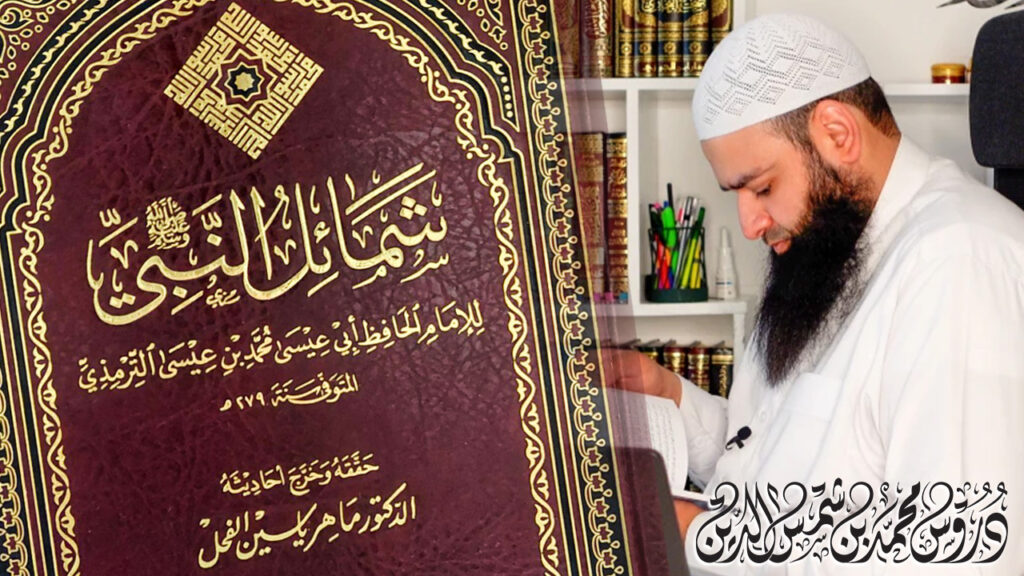 شَمَائِلُ النَّبِيِّ ﷺ
لِلإِمَامِ الحَافِظِ أَبِي عِيسَى مُحَمَّد بْنِ عِيسَى التِّرْمِذِيِّ
المُتَوَفَّى سَنَة ٢٧٩ هـ
حَقَّقَهُ وَخَرَّجَ أَحَادِيثَهُ
الدكتور ماهر ياسين الفحل
دُرُوسُ مُحَمَّد بْن شَمْسِ الدِّين